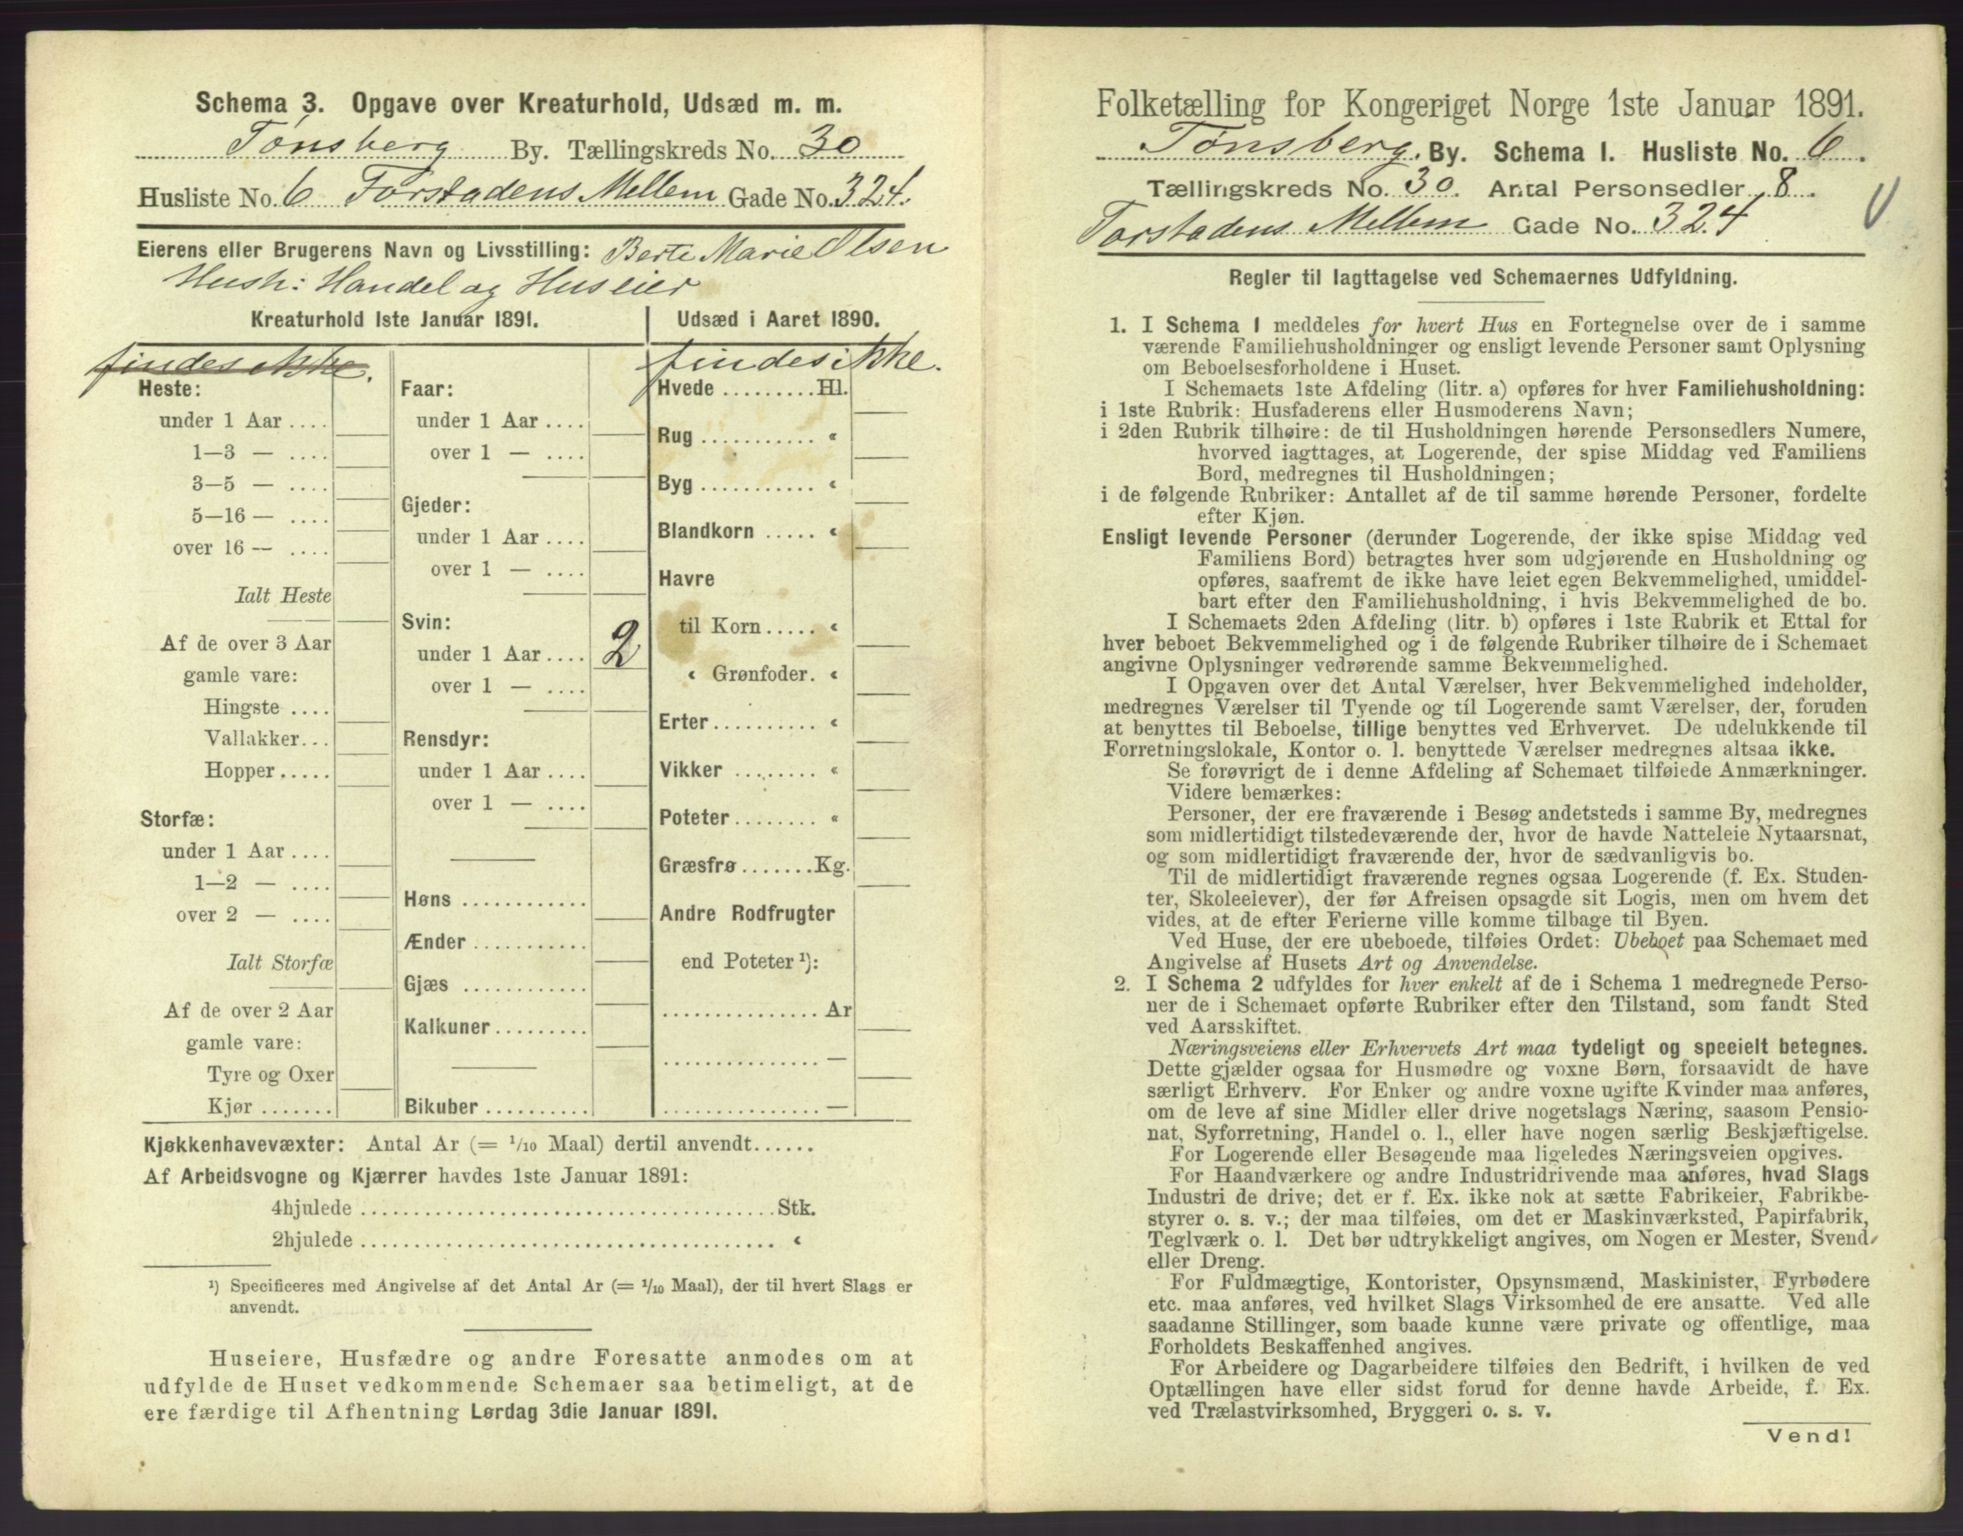 Schema 3. Opgave over Kreaturhold, Udsæd m. m.
Tønsberg By. Tællingskreds No. 30
Husliste No. 6 Forstadens Mellem Gade No. 324.
Eierens eller Brugerens Navn og Livsstilling: Berte Marie Olsen
Hush: Handel og Huseier
Kreaturhold 1ste Januar 1891.
findes ikke.
Heste:
under 1 Aar ....
1—3 — ....
3—5 — ....
5—16 — ....
over 16 — ....
Ialt Heste
Af de over 3 Aar
gamle vare:
Hingste ....
Vallakker...
Hopper.....
Storfæ:
under 1 Aar ....
1—2 — ....
over 2 — ....
Ialt Storfæ
Af de over 2 Aar
gamle vare:
Tyre og Oxer
Kjør .......
Faar:
under 1 Aar ....
over 1 — ....
Gjeder:
under 1 Aar ....
over 1 — ....
Svin:
under 1 Aar .... 2
over 1 — ....
Rensdyr:
under 1 Aar ....
over 1 — ....
Høns ............
Ænder ...........
Gjæs ............
Kalkuner .........
Bikuber ..........
Udsæd i Aaret 1890.
findes ikke.
Hvede .........Hl.
Rug ........... «
Byg ........... «
Blandkorn ..... «
Havre
til Korn..... «
« Grønfoder. «
Erter.......... «
Vikker ........ «
Poteter........ «
Græsfrø.......Kg.
Andre Rodfrugter
end Poteter ¹):
...............Ar
...............—
...............—
Kjøkkenhavevæxter: Antal Ar (= 1/10 Maal) dertil anvendt......
Af Arbeidsvogne og Kjærrer havdes 1ste Januar 1891:
4hjulede .......................................Stk.
2hjulede ....................................... «
¹) Specificeres med Angivelse af det Antal Ar (= 1/10 Maal), der til hvert Slags er
anvendt.
Huseiere, Husfædre og andre Foresatte anmodes om at
udfylde de Huset vedkommende Schemaer saa betimeligt, at de
ere færdige til Afhentning Lørdag 3die Januar 1891.
Folketælling for Kongeriget Norge 1ste Januar 1891.
Tønsberg. By. Schema I. Husliste No. 6.
Tællingskreds No. 30. Antal Personsedler 8.
Forstadens Mellem Gade No. 324
Regler til Iagttagelse ved Schemaernes Udfyldning.
1. I Schema 1 meddeles for hvert Hus en Fortegnelse over de i samme
værende Familiehusholdninger og ensligt levende Personer samt Oplysning
om Beboelsesforholdene i Huset.
I Schemaets 1ste Afdeling (litr. a) opføres for hver Familiehusholdning:
i 1ste Rubrik: Husfaderens eller Husmoderens Navn;
i 2den Rubrik tilhøire: de til Husholdningen hørende Personsedlers Numere,
hvorved iagttages, at Logerende, der spise Middag ved Familiens
Bord, medregnes til Husholdningen;
i de følgende Rubriker: Antallet af de til samme hørende Personer, fordelte
efter Kjøn.
Ensligt levende Personer (derunder Logerende, der ikke spise Middag ved
Familiens Bord) betragtes hver som udgjørende en Husholdning og
opføres, saafremt de ikke have leiet egen Bekvemmelighed, umiddel-
bart efter den Familiehusholdning, i hvis Bekvemmelighed de bo.
I Schemaets 2den Afdeling (litr. b) opføres i 1ste Rubrik et Ettal for
hver beboet Bekvemmelighed og i de følgende Rubriker tilhøire de i Schemaet
angivne Oplysninger vedrørende samme Bekvemmelighed.
I Opgaven over det Antal Værelser, hver Bekvemmelighed indeholder,
medregnes Værelser til Tyende og til Logerende samt Værelser, der, foruden
at benyttes til Beboelse, tillige benyttes ved Erhvervet. De udelukkende til
Forretningslokale, Kontor o. l. benyttede Værelser medregnes altsaa ikke.
Se forøvrigt de i denne Afdeling af Schemaet tilføiede Anmærkninger.
Videre bemærkes:
Personer, der ere fraværende i Besøg andetsteds i samme By, medregnes
som midlertidigt tilstedeværende der, hvor de havde Natteleie Nytaarsnat,
og som midlertidigt fraværende der, hvor de sædvanligvis bo.
Til de midlertidigt fraværende regnes ogsaa Logerende (f. Ex. Studen-
ter, Skoleelever), der før Afreisen opsagde sit Logis, men om hvem det
vides, at de efter Ferierne ville komme tilbage til Byen.
Ved Huse, der ere ubeboede, tilføies Ordet: Ubeboet paa Schemaet med
Angivelse af Husets Art og Anvendelse.
2. I Schema 2 udfyldes for hver enkelt af de i Schema 1 medregnede Perso-
ner de i Schemaet opførte Rubriker efter den Tilstand, som fandt Sted
ved Aarsskiftet.
Næringsveiens eller Erhvervets Art maa tydeligt og specielt betegnes.
Dette gjælder ogsaa for Husmødre og voxne Børn, forsaavidt de have
særligt Erhverv. For Enker og andre voxne ugifte Kvinder maa anføres,
om de leve af sine Midler eller drive nogetslags Næring, saasom Pensio-
nat, Syforretning, Handel o. l., eller have nogen særlig Beskjæftigelse.
For Logerende eller Besøgende maa ligeledes Næringsveien opgives.
For Haandværkere og andre Industridrivende maa anføres, hvad Slags
Industri de drive; det er f. Ex. ikke nok at sætte Fabrikeier, Fabrikbe-
styrer o. s. v.; der maa tilføies, om det er Maskinværksted, Papirfabrik,
Teglværk o. l. Det bør udtrykkeligt angives, om Nogen er Mester, Svend
eller Dreng.
For Fuldmægtige, Kontorister, Opsynsmænd, Maskinister, Fyrbødere
etc. maa anføres, ved hvilket Slags Virksomhed de ere ansatte. Ved alle
saadanne Stillinger, som baade kunne være private og offentlige, maa
Forholdets Beskaffenhed angives.
For Arbeidere og Dagarbeidere tilføies den Bedrift, i hvilken de ved
Optællingen have eller sidst forud for denne havde Arbeide, f. Ex.
ved Trælastvirksomhed, Bryggeri o. s. v.
Vend!